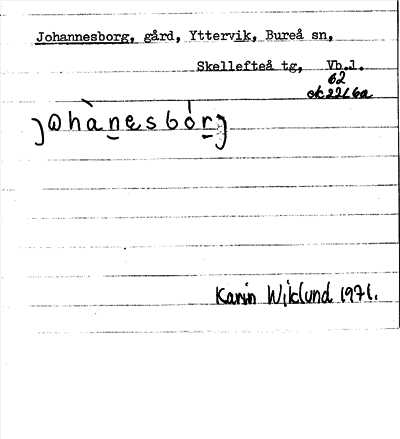 Johannesborg, gård, Yttervik, Bureå sn,
Skellefteå tg, Vb.l.
62
ek 22L6a
Johànesbórj
Karin Wiklund 1971.